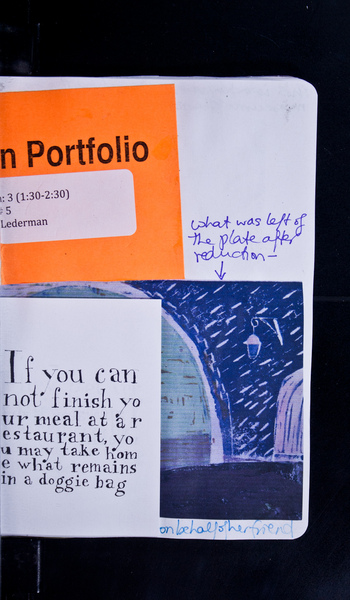 n Portfolio
: 3 (1:30-2:30)
# 5
Lederman
what was left of
the plate after
reduction—
If you can
not finish yo
ur meal at a r
estaurant, yo
u may take hom
e what remains
in a doggie bag
on behalf of her friend